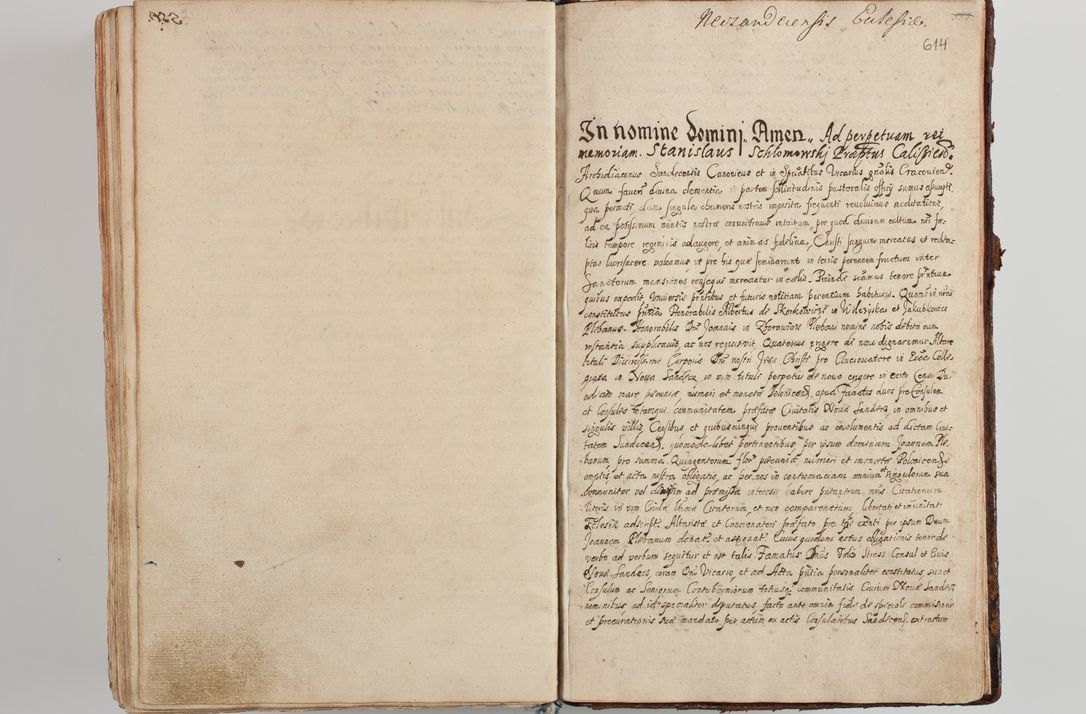 Neosandecensis Ecclesiae.
614
In nomine Domini Amen Ad perpetuam rei
memoriam. Stanislaus Schlomowskj Præptus Calissien.
Archidiaconus Sandecensis Canonicus et in Spualibus Vicarius gnalis Cracovien.
Quum favens divina clementia in partem sollicitudinis pastoralis officij sumus assumpti
qua permoti, dum singula humeris nostris imposita frequenti revolvimus meditatione,
ad ea potissimum mentis nostræ convertimus intuitum, per quod divinum cultum nri fæ-
licis tempore regiminis adaugere, et animas fidelium, Christi sanguine mercatus et redem-
ptas lucrifacere valeamus, ut pro his quæ seminarunt in terris perennem fructum inter
Sanctorum mansiones consequi mereantur in cælis. Proinde scimus tenore pntium
quibus expedit Universis pntibus et futuris notitiam præsentium habituris. Quomo in nra
constitutus pntia Honorabilis Albertus de Skorkowicze in Wilczyska et Jakubkowice
Plebanus. Honorabilis Dni Joannis in Zborowicze Plebani nomine nobis debita cum
instantia supplicavit, ac nos requisivit, Quatenus erigere de novo dignaremur Altare
tituli Divinissimi Corporis Dni nostri Jesu Christi pro Concionatore in Ecca Colle-
giata in Nova Sandecz in vim tituli perpetui de novo erigere in certo Censu
marc pecuniæ, numeri et monetæ Polonicen, apud Famatos duos proConsulem
et Consules totamque communitatem præfatæ Civitatis Novæ Sandecz, in omnibus et
singulis villis, Censibus et quibuscunque proventibus ac emolumentis ad dictam Civi-
tatem Sandecen. quomodolibet pertinentibus per ipsum dominum Joannem Ple-
banum pro summa Quingentorum flor pecuniæ numeri et monetæ Polonicen.
emptis et acta nostra obligatis, ac per nos in contumaciam omnium et singulorum sua
communiter vel divisim ad præmissa interesse habere putantium, nris Citationum
literis in vim Citatorum et non comparentium, libertati et immunitati
Ecclesiæ adscript Altaristæ et Concionatori præfato pro tpe exnti per ipsum Dnum
Joannem Plebanum donat. et assignat. Cuius quidem actus obligationis tenor de
verbo ad verbum sequitur et est talis Famatus Dnus Consul et Civis
Novæ Sandecz, coram Dno Vicario, et ad Acta pntia personaliter constitutus suo et
Consulum ac Seniorum Contuberniorum totiusque communitatis Civium Novæ Sandecz
nominibus ad id specialiter deputatus, facta ante omnia fide de speciali commissione
et procurationis suæ mandato per actum ex actis Consularibus Sandecen. extractum